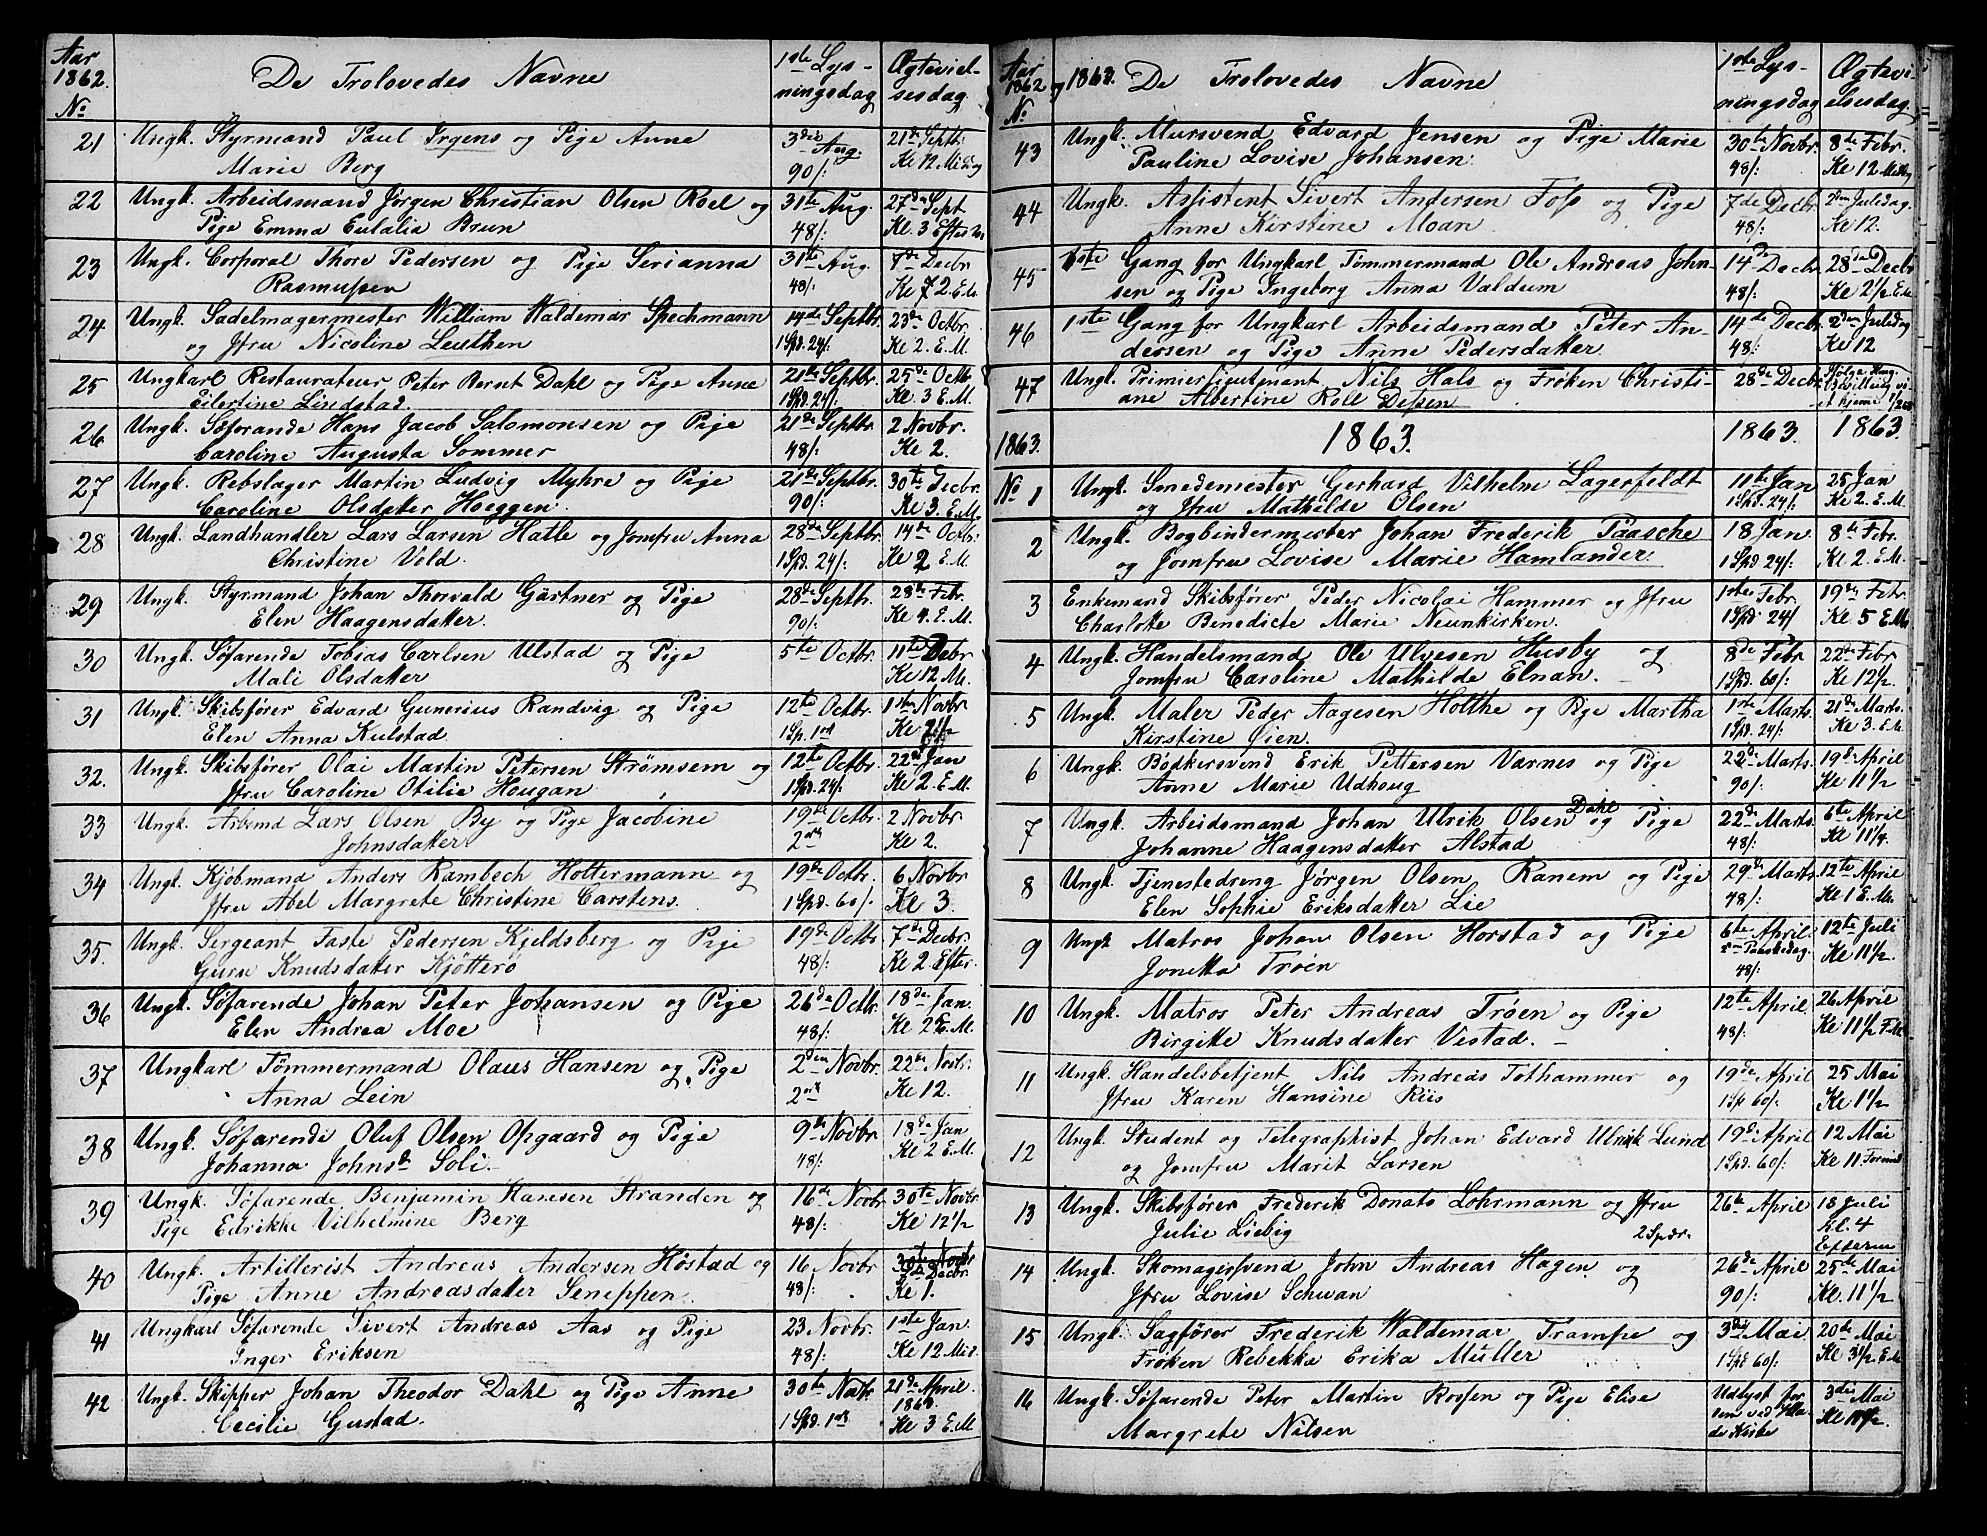 Aar
1862.
No
De Trolovedes Navne
1ste Lys-
ningsdag
Ægteviel-
sesdag
21 Ungk. Styrmand Paul Irgens og Pige Anne
Marie Berg
3die Aug.
90/:
21de Septbr.
Kl 12 Middag
22 Ungk. Arbeidsmand Jørgen Christian Olsen Roel og
Pige Emma Eulalia Brun
31te Aug.
48/:
27de Sept
Kl. 3 Efter M
23 Ungk. Corporal Thore Pedersen og Pige Serianna
Rasmussen
31te Aug.
48/:
7de Decbr
Kl 2. E.M.
24 Ungk. Sadelmagermester William Waldemar Spechmann
og Jfru Nicoline Leuthen
14de Septbr.
1 Spd. 24/:
23de Octbr.
Kl 2. E.M.
25 Ungkarl Restaurateur Peter Bernt Dahl og Pige Anne
Eilertine Lindstad
21de Septbr.
1 Spd. 24/:
25de Octbr
Kl. 3 E.M.
26 Ungk. Søfarande Hans Jacob Salomonsen og Pige
Caroline Augusta Sommer
21de Septbr
48/:
2 Novbr.
Kl 2.
27 Ungk. Rebslager Martin Ludvig Myhre og Pige
Caroline Olsdatter Hoeggen
21de Septbr.
90/:
30te Decbr.
Kl 3. E.M.
28 Ungk. Landhandler Lars Larsen Hatle og Jomfru Anna
Christine Vold.
28de Septbr.
1 Spd. 24/:
14de Octbr.
Kl 2 E.M.
29 Ungk. Styrmand Johan Thorvald Gärtner og Pige
Elen Haagensdatter.
28de Septbr.
90/:
28de Febr.
Kl 4. E.M.
30 Ungk. Søfarende Tobias Carlsen Ulstad og Pige
Mali Olsdatter
5te Octbr.
11te Debr
Kl 12 M.
31 Ungk. Skibsfører Edvard Gunerius Randvig og Pige
Elen Anna Kulstad
12te Octbr.
1 Sp. 1 ort
1ste Novbr
32. Ungk. Skibsfører Olai Martin Petersen Strömsem og
Jfru Caroline Otilie Hougan
12te Octbr.
1 Spd. 24/:
22de Jan
Kl 2. E.M.
33 Ungk. Arbmd Lars Olsen By og Pige Jacobine
Johnsdatter
19de Octbr.
2 ort
2 Novbr
Kl 2.
34 Ungk. Kjøbmand Anders Rambech Holtermann og
Jfru Abel Margrete Christine Carstens.
19de Octbr.
1 Spd. 60/:
6 Novbr
Kl 3.
35. Ungk. Sergeant Taste Pedersen Kjeldsberg og Pige
Guru Knudsdatter Kjøtterø
19de Octbr.
48/:
7de Decbr.
Kl 2. Efter.
36 Ungk. Søfarende Johan Peter Johansen og Pige
Elen Andrea Moe
26de Octbr.
48/:
18de Jan.
Kl 2 E.M.
37 Ungkarl Tømmermand Olaus Hansen og Pige
Anna Lein
2den Novbr.
2 ort
22de Novbr.
Kl 12.
38 Ungk. Søfarende Oluf Olsen Opgaard og Pige
Johanna Johnsd Soli
9de Novbr
48/:
18de Jan
Kl 2 E.M.
39 Ungk. Søfarende Benjamin Hansen Stranden og
Pige Edrikke Vilhelmine Berg
16de Novbr
48/:
30te Novbr.
Kl 12 1/2
40 Ungk. Artillerist Andreas Andersen Höstad og
Pige Anne Andreasdatter Seneppen.
16 Novbr
48/:
Kl 1.
41 Ungkarl Søfarende Sivert Andreas Aas og Pige
Inger Eriksen
23 Novbr.
48/:
1ste Jan.
Kl 12 Mid.
42 Ungk. Skipper Johan Theodor Dahl og Pige Anne
Cecilie Gustad.
30te Novbr
1 Spd. 1 ort
21de April
1863.
Kl 3 E.M.
Aar
1862 og 1863.
No
De Trolovedes Navne
1ste Lys-
ningsdag
Ægtevi-
elsesdag
43 Ungk. Mursvend Edvard Jensen og Pige Marie
Pauline Lovise Johansen.
30te Novbr.
48/:
8de Febr.
Kl 12 Middg
44 Ungk. Assistent Sivert Andersen Foss og Pige
Anne Kirstine Moan
7de Decbr
48/:
2den Juledag.
Kl 12.
45 1ste Gang for Ungkarl Tømmermand Ole Andreas John-
sen og Pige Ingeborg Anna Valdum
14de Decbr.
48/:
28de Decbr
Kl 2 1/2 E.M
46 1ste Gang for Ungkarl Arbeidsmand Peter An-
dersen og Pige Anne Pedersdatter.
14de Decbr
48/:
2den Juledag
Kl 12
47 Ungk. Primierlieutnant Nils Hals og Frøken Christi-
ane Albertine Roll Dessen
28de Decbr.
1863. 1863. 1863. 1863.
No 1 Ungk. Smedemester Gerhard Vilhelm Lagerfeldt
og Jfru Mathilde Olsen
11te Jan
1 Spd. 24/:
25 Jan
Kl 2. E.M.
2 Ungk. Bogbindermeister Johan Frederik Paasche
og Jomfru Lovise Marie Hamlander.
18 Jan.
1 Spd 24/:
8de Febr.
Kl 2. E.M.
3 Enkemand Skibsfører Peder Nicolai Hammer og Jfru
Charlotte Benedicte Marie Neunkirken.
1ste Febr.
1 Spd. 24/
19de Febr.
Kl 5 E.M.
4 Ungk. Handelsmand Ole Ulvesen Husby og
Jomfru Caroline Mathilde Elnan.
8de Febr
1 Spd. 60/:
22de Febr
Kl 12 1/2.
5 Ungk. Maler Peder Aagesen Holthe og Pige Martha
Kirstine Øien.
1ste Marts
1 Spd. 24/:
21de Marts.
Kl 3. E.M.
6 Ungk. Bødkersvend Erik Pettersen Værnes og Pige
Anne Marie Udhoug
22de Marts.
90/:
19de April
Kl 11 1/2
7 Ungk. Arbeidsmand Johan Ulrik Olsen Dahl og Pige
Johanne Haagensdatter Alstad
22de Marts.
48/:
6te April
Kl 11 1/4.
8 Ungk. Tjenestedreng Jørgen Olsen Ranem og Pige
Elen Sophie Eriksdatter Lie
29de Marts.
48/:
12te April
Kl 1 E.M.
9 Ungk Matros Johan Olsen Horstad og Pige
Jonetta Trøen
6te April.
2den Paaskedag.
48/:
12te Juli
Kl 11 1/2.
10 Ungk. Matros Peter Andreas Trøen og Pige
Birgitte Knudsdatter Vestad.
12te April
48/:
26 April
Kl 11 1/2 F.M.
11 Ungk. Handelsbetjent Nils Andreas Tothammer og
Jfru Karen Hansine Riis
19de April
1 Sp 60/:
25 Mai
Kl 1 1/2
12 Ungk. Student og Telegraphist Johan Edvard Ulrik Lund
og Jomfru Marit Larsen
19de April
1 Spd. 60/:
12 Mai
Kl 11 Formd
13 Ungk. Skibsfører Frederik Donato Lohrmann og Jfru
Julie Liebig 2 Spdr.
26de April
18 Juli
Kl. 4
Efterm
14 Ungk. Skomagersvend John Andreas Hagen og
Jfru Lovise Schwan
26de April
90/:
25de Mai
Kl. 11 1/2
15 Ungk. Sagfører Frederik Waldemar Trampe og
Frøken Rebekka Erika Müller
3die Mai
1 Spd 60/:
20de Mai
Kl 3 1/2 E.M
16 Ungk. Søfarende Peter Martin Rossen og Pige Elise
Margrete Nilsen
Udlyst for
dem ved Hla-
de Kirke
3die Mai